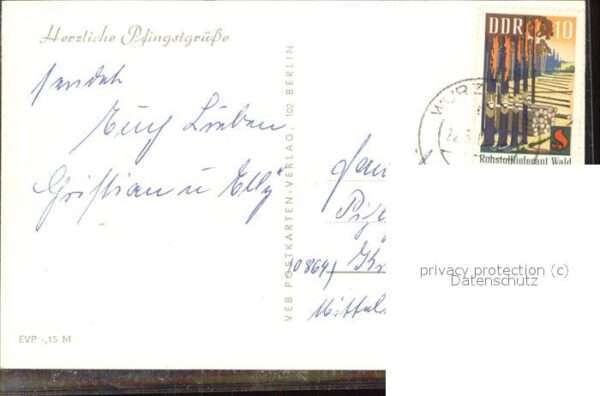 Herzliche Pfingstgrüße
sendet
Euch Lieben
Christian u Elly
EVP -,15 M
VEB POSTKARTEN-VERLAG, 102 BERLIN
DDR 10
Rohstofflieferant Wald
WURZ
Mittel
privacy protection (c)
Datenschutz